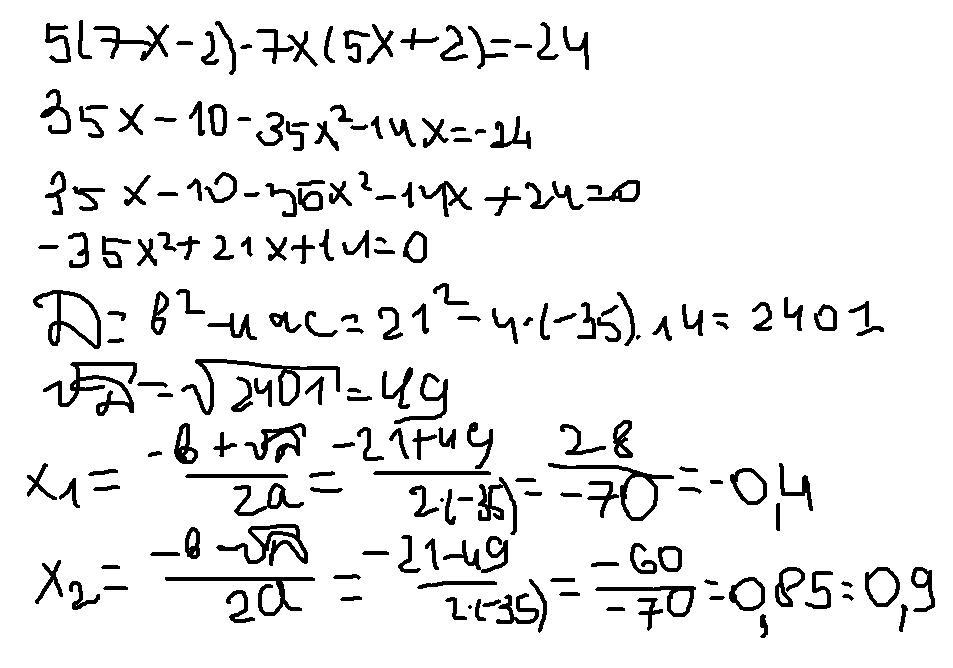 5(7x-2)-7x(5x+2)=-24
35x-10-35x²-14x=-24
35x-10-35x²-14x+24=0
-35x²+21x+14=0
D=b²-4ac=21²-4·(-35)·14=2401
√D=√2401=49
x₁=(-b+√D)/(2a)=(-21+49)/(2·(-35))=28/(-70)=-0,4
x₂=(-b-√D)/(2a)=(-21-49)/(2·(-35))=(-60)/(-70)=0,85=0,9